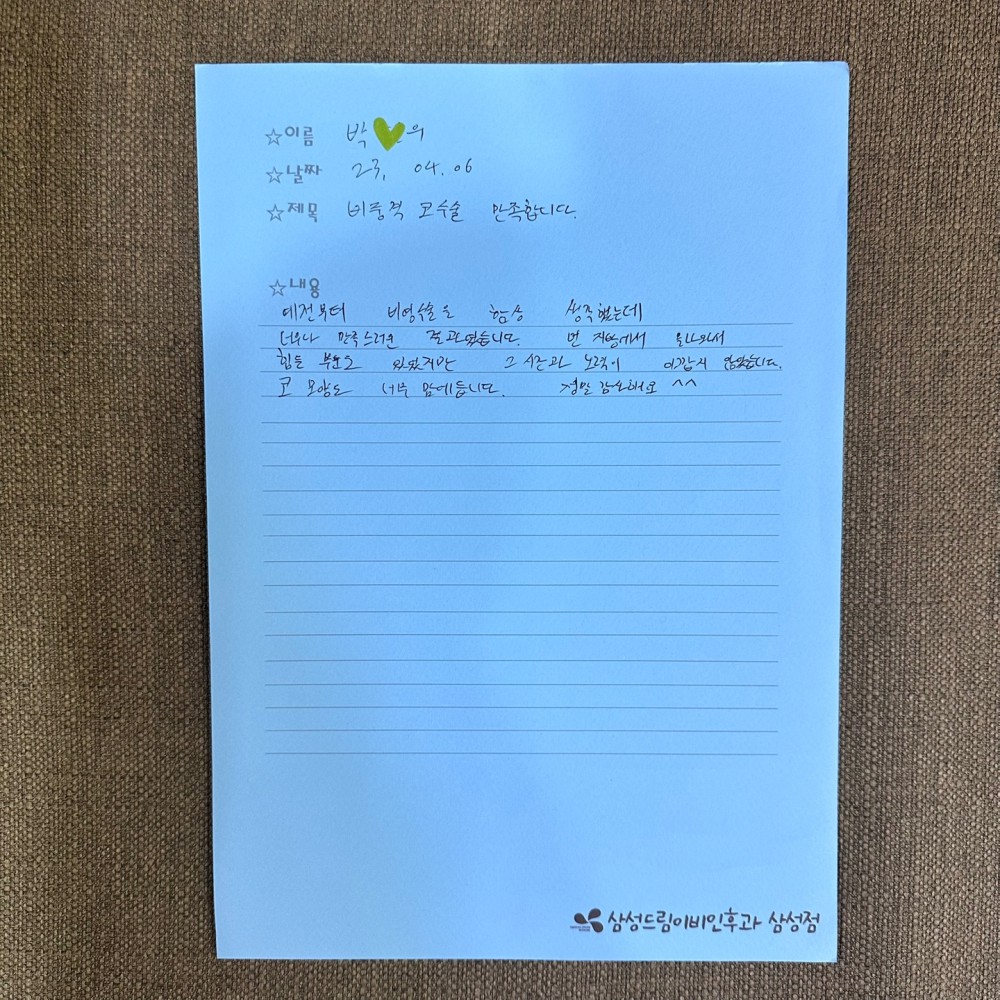 ☆이름 박 우
☆날짜 23. 04. 06
☆제목 비중격 코수술 만족합니다.
☆내용
예전부터 비염수술을 항상 생각했는데
너무나 만족스러운 결과였습니다. 먼 지방에서 올라와서
힘든 부분도 있었지만 그 시간과 노력이 아깝지 않았습니다.
코 모양도 너무 맘에 듭니다. 정말 감사해요 ^^
삼성드림이비인후과 삼성점